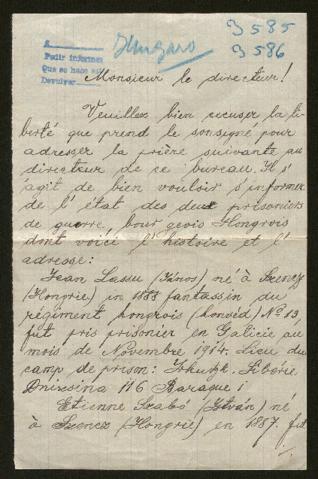 3585
Hungaro
3586
A
Pedir informes
Que se hace en
Devolver
Monsieur le directeur!
Veuillez bien excuser la li-
berté que prend le sousigné pour
adresser la prière suivante au
directeur de ce bureau. Il s'
agit de bien vouloir s'informer
de l'état des deux prisoniers
de guerre, bourgeois Hongrois
dont voici l'histoire et l'
adresse:
Jean Lassu (János) né à Szencz
(Hongrie) in 1888 fantassin du
régiment hongrois (honvéd) No 13
fut pris prisonier en Galicie au
mois de Novembre 1914. Lieu du
camp de prison: Sibérie
116 Baraque 1
Etienne Szabó (István) né
à Szencz (Hongrie) en 1887. fut